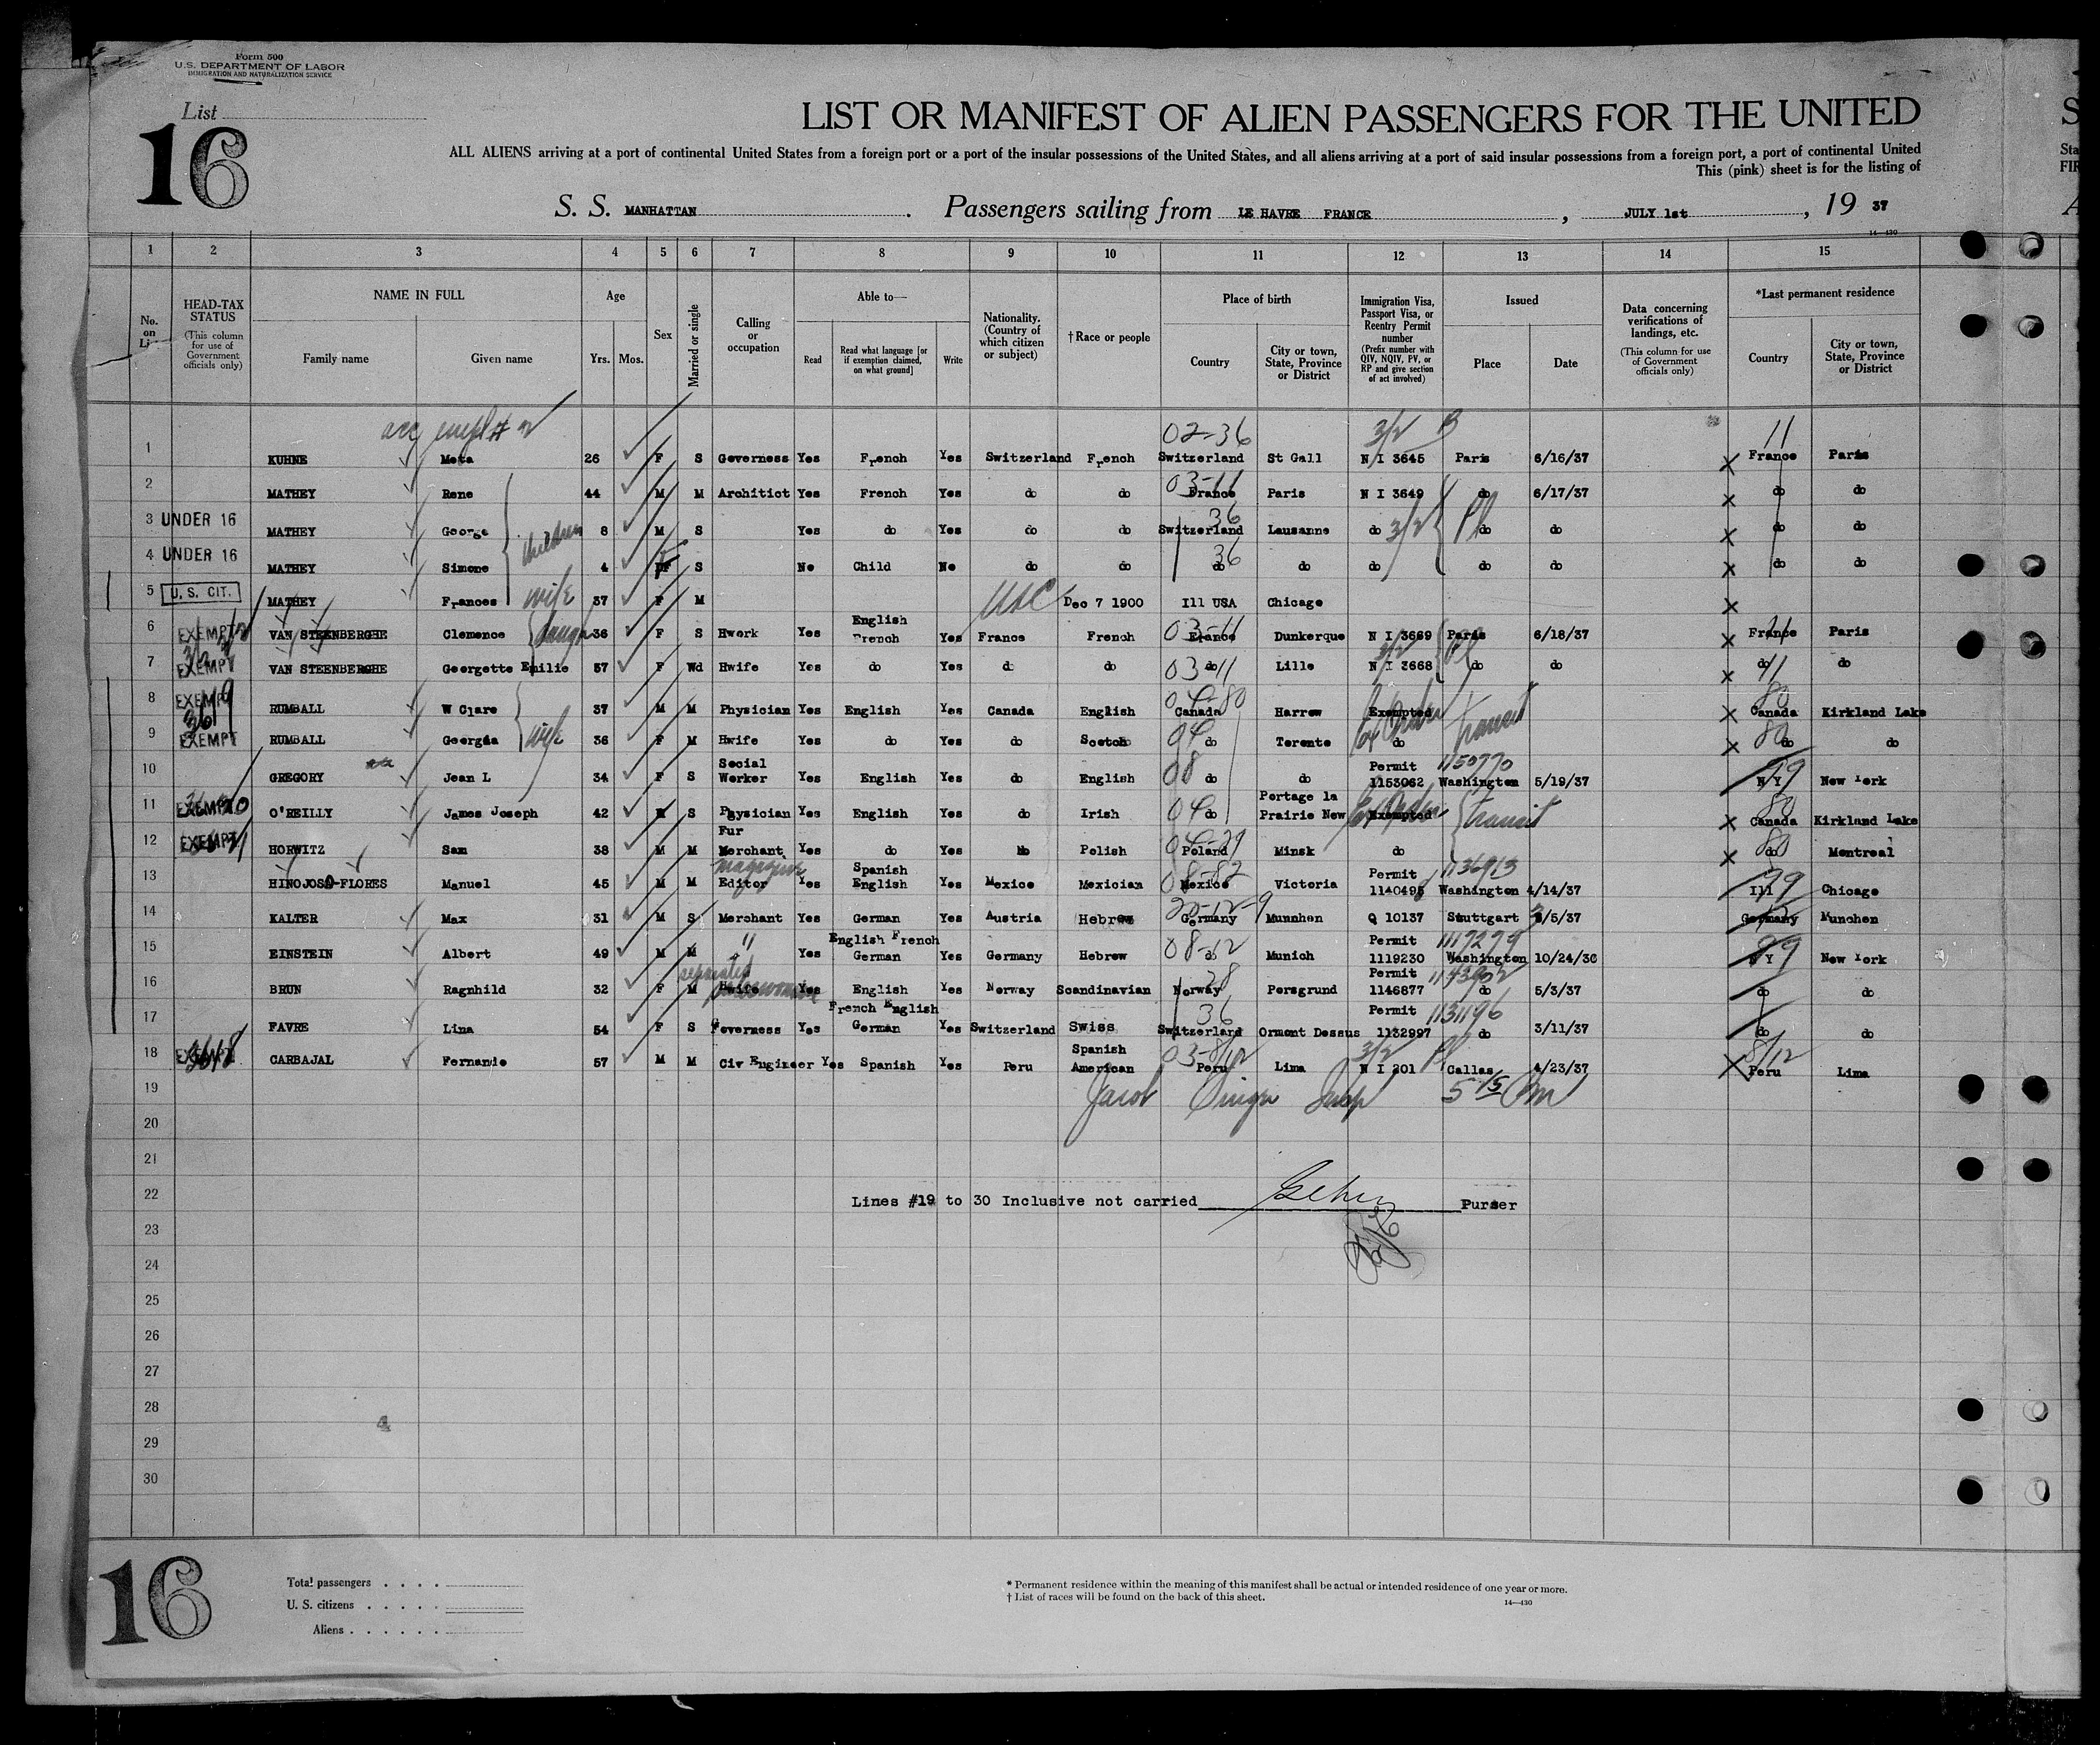 Form 500
U.S. DEPARTMENT OF LABOR
IMMIGRATION AND NATURALIZATION SERVICE
List
16
LIST OR MANIFEST OF ALIEN PASSENGERS FOR THE UNITED
ALL ALIENS arriving at a port of continental United States from a foreign port or a port of the insular possessions of the United States, and all aliens arriving at a port of said insular possessions from a foreign port, a port of continental United
This (pink) sheet is for the listing of
S. S. MANHATTAN . Passengers sailing from LE HAVRE FRANCE , JULY 1st , 19 37
14—430
1 2 3 4 5 6 7 8 9 10 11 12 13 14 15
No. on List
HEAD-TAX STATUS (This column for use of Government officials only)
NAME IN FULL
Family name Given name
Age
Yrs. Mos.
Sex
Married or single
Calling or occupation
Able to—
Read Read what language [or if exemption claimed, on what ground] Write
Nationality. (Country of which citizen or subject)
† Race or people
Place of birth
Country City or town, State, Province or District
Immigration Visa, Passport Visa, or Reentry Permit number (Prefix number with QIV, NQIV, PV, or RP and give section of act involved)
Issued
Place Date
Data concerning verifications of landings, etc. (This column for use of Government officials only)
*Last permanent residence
Country City or town, State, Province or District
02-36 3/2 11
1 KUHNE Meta 26 F S Governess Yes French Yes Switzerland French Switzerland St Gall N I 3645 Paris 6/16/37 X France Paris
03-11
2 MATHEY Rene 44 M M Architict Yes French Yes do do France Paris N I 3649 do 6/17/37 X do do
36
3 UNDER 16 MATHEY George children 8 M S Yes do Yes do do Switzerland Lausanne do 3/2 do do X do do
36
4 UNDER 16 MATHEY Simone 4 F S No Child No do do do do do do do X do do
5 U. S. CIT. MATHEY Frances wife 37 F M USC Dec 7 1900 Ill USA Chicago X
English
6 EXEMPT VAN STEENBERGHE Clemence 36 F S Hwork Yes French Yes France French 03-11 France Dunkerque N I 3669 Paris 6/18/37 X France Paris
7 EXEMPT VAN STEENBERGHE Georgette Emilie 57 F Wd Hwife Yes do Yes do do 03 do 11 Lille N I 3668 do do X do 11 do
04-80 80
8 EXEMPT RUMBALL W Clare 37 M M Physician Yes English Yes Canada English Canada Harrow Exempted Transit X Canada Kirkland Lake
9 EXEMPT RUMBALL Georgia wife 36 F M Hwife Yes do Yes do Scotch do Toronto do X do do
Social Permit 1150770
10 GREGORY Jean L 34 F S Worker Yes English Yes do English 08 do do 1153062 Washington 5/19/37 N Y New York
Portage la
11 EXEMPT O'REILLY James Joseph 42 M S Physician Yes English Yes do Irish 04 do Prairie New Exempted Transit X Canada Kirkland Lake
Fur
12 EXEMPT HORWITZ Sam 38 M M Merchant Yes do Yes do Polish Poland Minsk do X do Montreal
magazine Spanish Permit 1136913
13 HINOJOSA-FLORES Manuel 45 M M Editor Yes English Yes Mexico Mexician Mexico Victoria 1140495 Washington 4/14/37 Ill Chicago
14 KALTER Max 31 M S Merchant Yes German Yes Austria Hebrew Germany Munnhen Q 10137 Stuttgart /5/37 Germany Munchen
English French Permit 1117279
15 EINSTEIN Albert 49 M M " Yes German Yes Germany Hebrew 08-12 do Munich 1119230 Washington 10/24/36 N Y New York
separated Permit
16 BRUN Ragnhild 32 F M Hwife Yes English Yes Norway Scandinavian Norway Porsgrund 1146877 do 5/3/37 do do
French English 36 Permit 1131196
17 FAVRE Lina 54 F S Governess Yes German Yes Switzerland Swiss Switzerland Ormont Dessus 1132997 do 3/11/37 do do
Spanish
18 EXEMPT CARBAJAL Fernando 57 M M Civ Engineer Yes Spanish Yes Peru American Peru Lima N I 201 Callas 4/23/37 X Peru Lima
19 Jacob Insp 5 15 Pm
20
21
22 Lines #19 to 30 Inclusive not carried Purser
23
24
25
26
27
28
29
30
16
Total passengers . . . .
U. S. citizens . . . . .
Aliens . . . . . .
* Permanent residence within the meaning of this manifest shall be actual or intended residence of one year or more.
† List of races will be found on the back of this sheet.
14—430